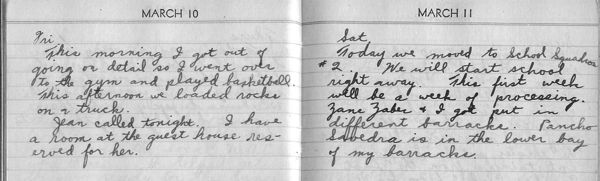 MARCH 10
Fri.
This morning I got out of
going on detail so I went over
to the gym and played basketball.
This afternoon we loaded rocks
on a truck.
Jean called tonight. I have
a room at the guest house res-
erved for her.
MARCH 11
Sat.
Today we moved to School Squadron
#2. We will start school
right away. This first week
will be a week of processing.
Zane Zaber & I got put in
different barracks. Pancho
Savedra is in the lower bay
of my barracks.